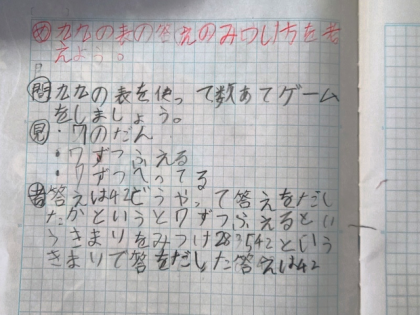 め 九九の表の答えのみつけ方を考
えよう。
問 九九の表を使って数あてゲーム
をしましょう。
見 ・7のだん
・7ずつふえる
・7ずつへってる
考 答えは42どうやって答えをだし
たかというと7ずつふえるとい
うきまりをみつけ28 35 42という
きまりで答をだした答えは42